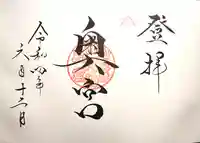 登拝
奥宮
令和四年
六月十二月